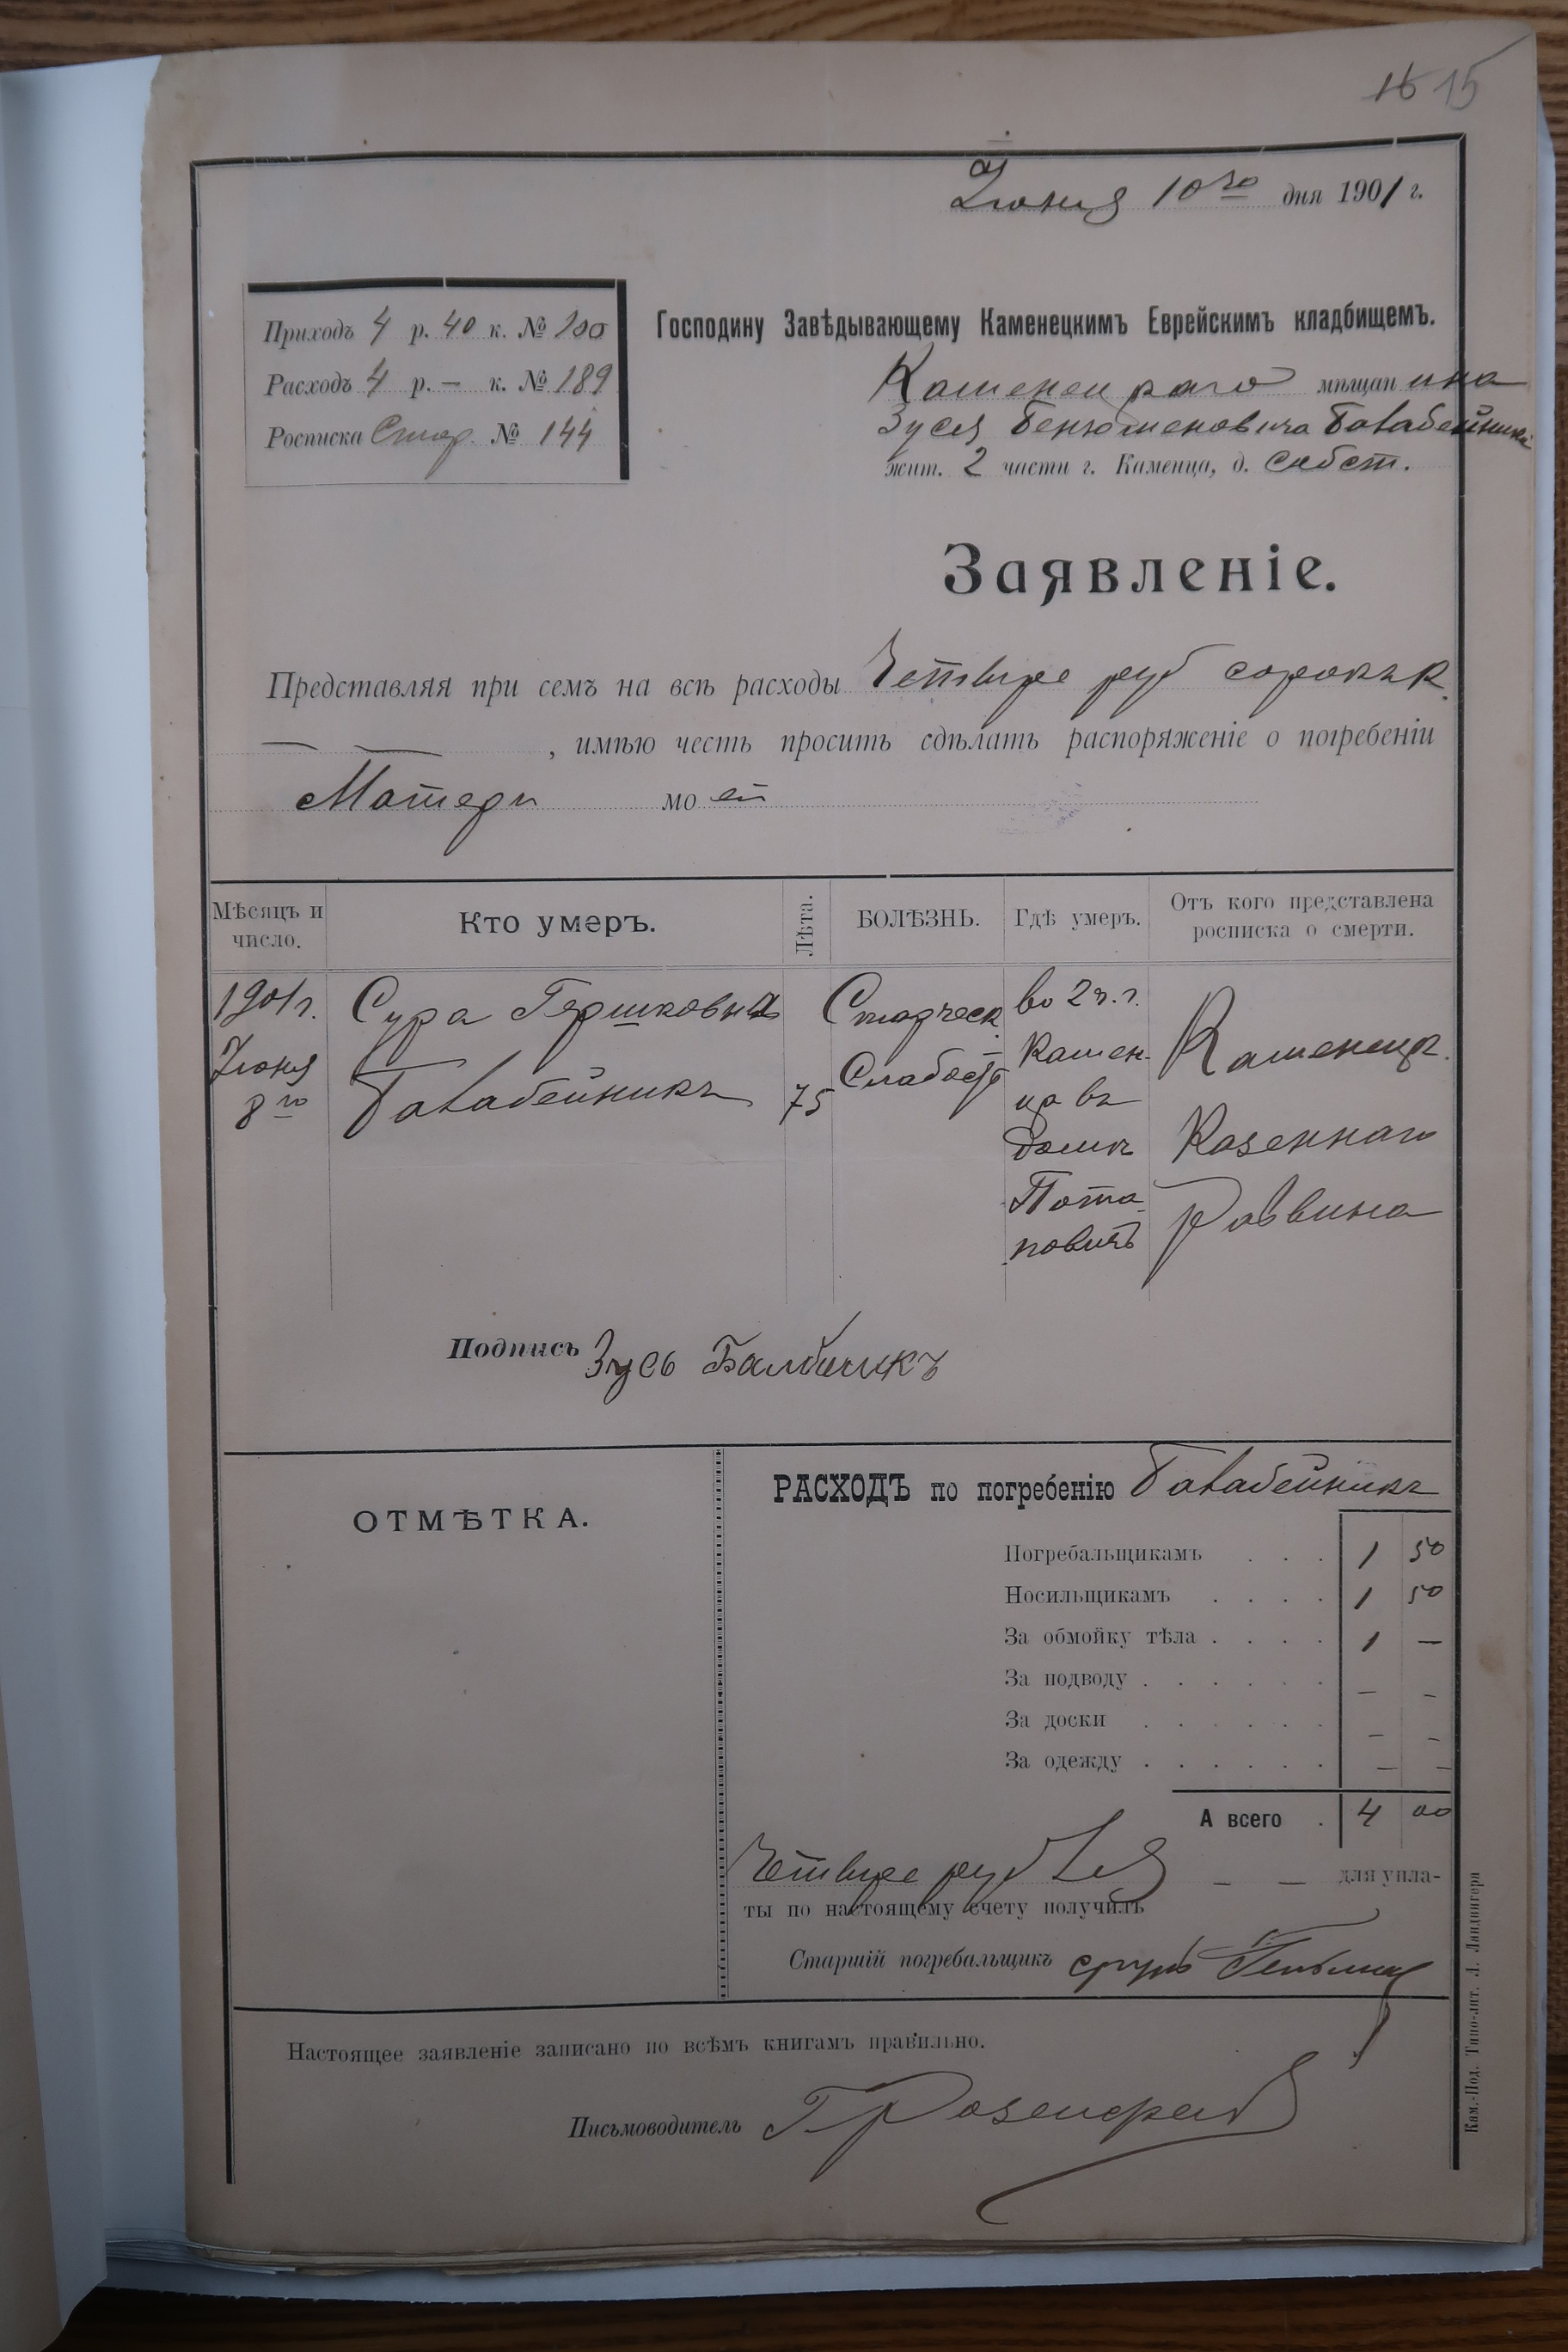 16 15
Іюня 10го дня 1901 г.
Приходъ 4 р. 40 к. № 200
Расходъ 4 р. – к. № 189
Росписка Стар. № 144
Господину Завѣдывающему Каменецкимъ Еврейскимъ кладбищемъ.
Каменецкаго мѣщанина
Зуся Бенюменовича Балабейника
жит. 2 части г. Каменца, д. собст.
Заявленіе.
Представляя при семъ на всѣ расходы Четыре руб сорокъ к.
— — , имѣю честь просить сдѣлать распоряженіе о погребеніи
Матери моей
Мѣсяцъ и число. Кто умеръ. Лѣта. БОЛѢЗНЬ. Гдѣ умеръ. Отъ кого представлена росписка о смерти.
1901 г. Сура Гершковна Старческ. во 2 ч. г.
Іюня Балабейникъ 75 Слабость Камен- Каменецк.
8го ца въ
домѣ Казеннаго
Пота-
повичъ Раввина
Подпись Зусь Балбиикъ
ОТМѢТКА.
РАСХОДЪ по погребенію Балабейникъ
Погребальщикамъ . . . 1 50
Носильщикамъ . . . . 1 50
За обмойку тѣла . . . . 1 —
За подводу . . . . . . – –
За доски . . . . . . – –
За одежду . . . . . . – –
А всего . 4 00
Четыре руб — — для упла-
ты по настоящему счету получилъ
Старшій погребальщикъ
Настоящее заявленіе записано по всѣмъ книгамъ правильно.
Письмоводитель Г Розенфельд
Кам.-Под. Типо-лит. Л. Ландвигера